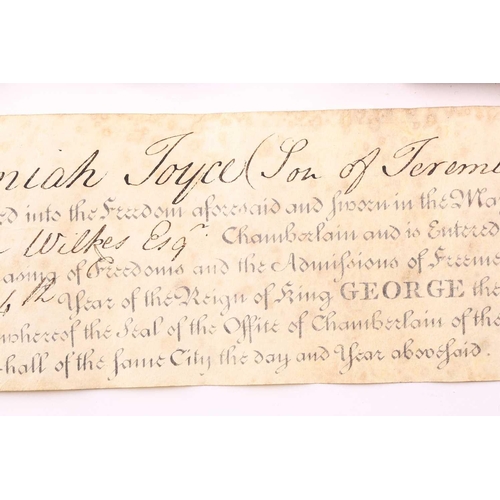 niah Joyce (Son of Jeremi
ed into the Freedom aforesaid and sworn in the Ma
Wilkes Esqr. Chamberlain and is Entered
asing of Freedoms and the Admissions of Freeme
4th Year of the Reign of King GEORGE the
whereof the Seal of the Office of Chamberlain of the
hall of the same City the day and Year abovesaid.